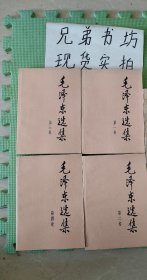 兄弟书坊
现货实拍
毛泽东选集
第三卷
毛泽东选集
第一卷
毛泽东选集
第四卷
毛泽东选集
第二卷